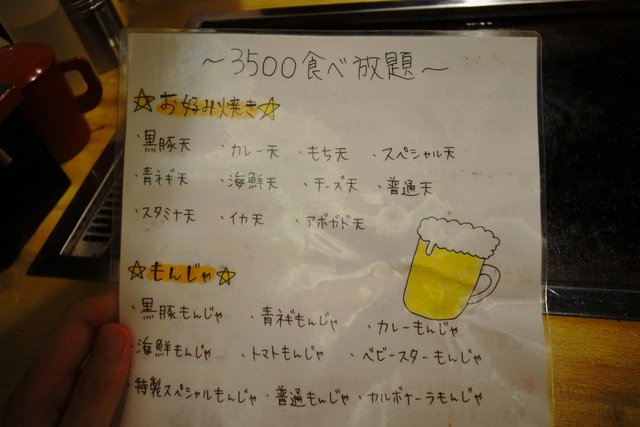 ～3500食べ放題～
☆お好み焼き☆
・黒豚天 ・カレー天 ・もち天 ・スペシャル天
・青ネギ天 ・海鮮天 ・チーズ天 ・普通天
・スタミナ天 ・イカ天 ・アボガド天
☆もんじゃ☆
・黒豚もんじゃ ・青ネギもんじゃ ・カレーもんじゃ
・海鮮もんじゃ ・トマトもんじゃ ・ベビースターもんじゃ
・特製スペシャルもんじゃ ・普通もんじゃ ・カルボナーラもんじゃ